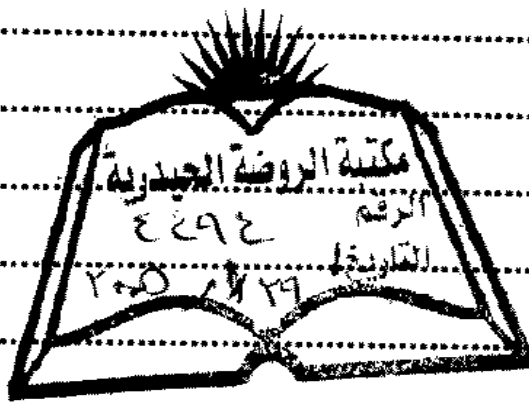 مكتبة الروضة الحيدرية
الرقم ٤٤٩٤
التاريخ ٢٩ / / ٢٠٠٥